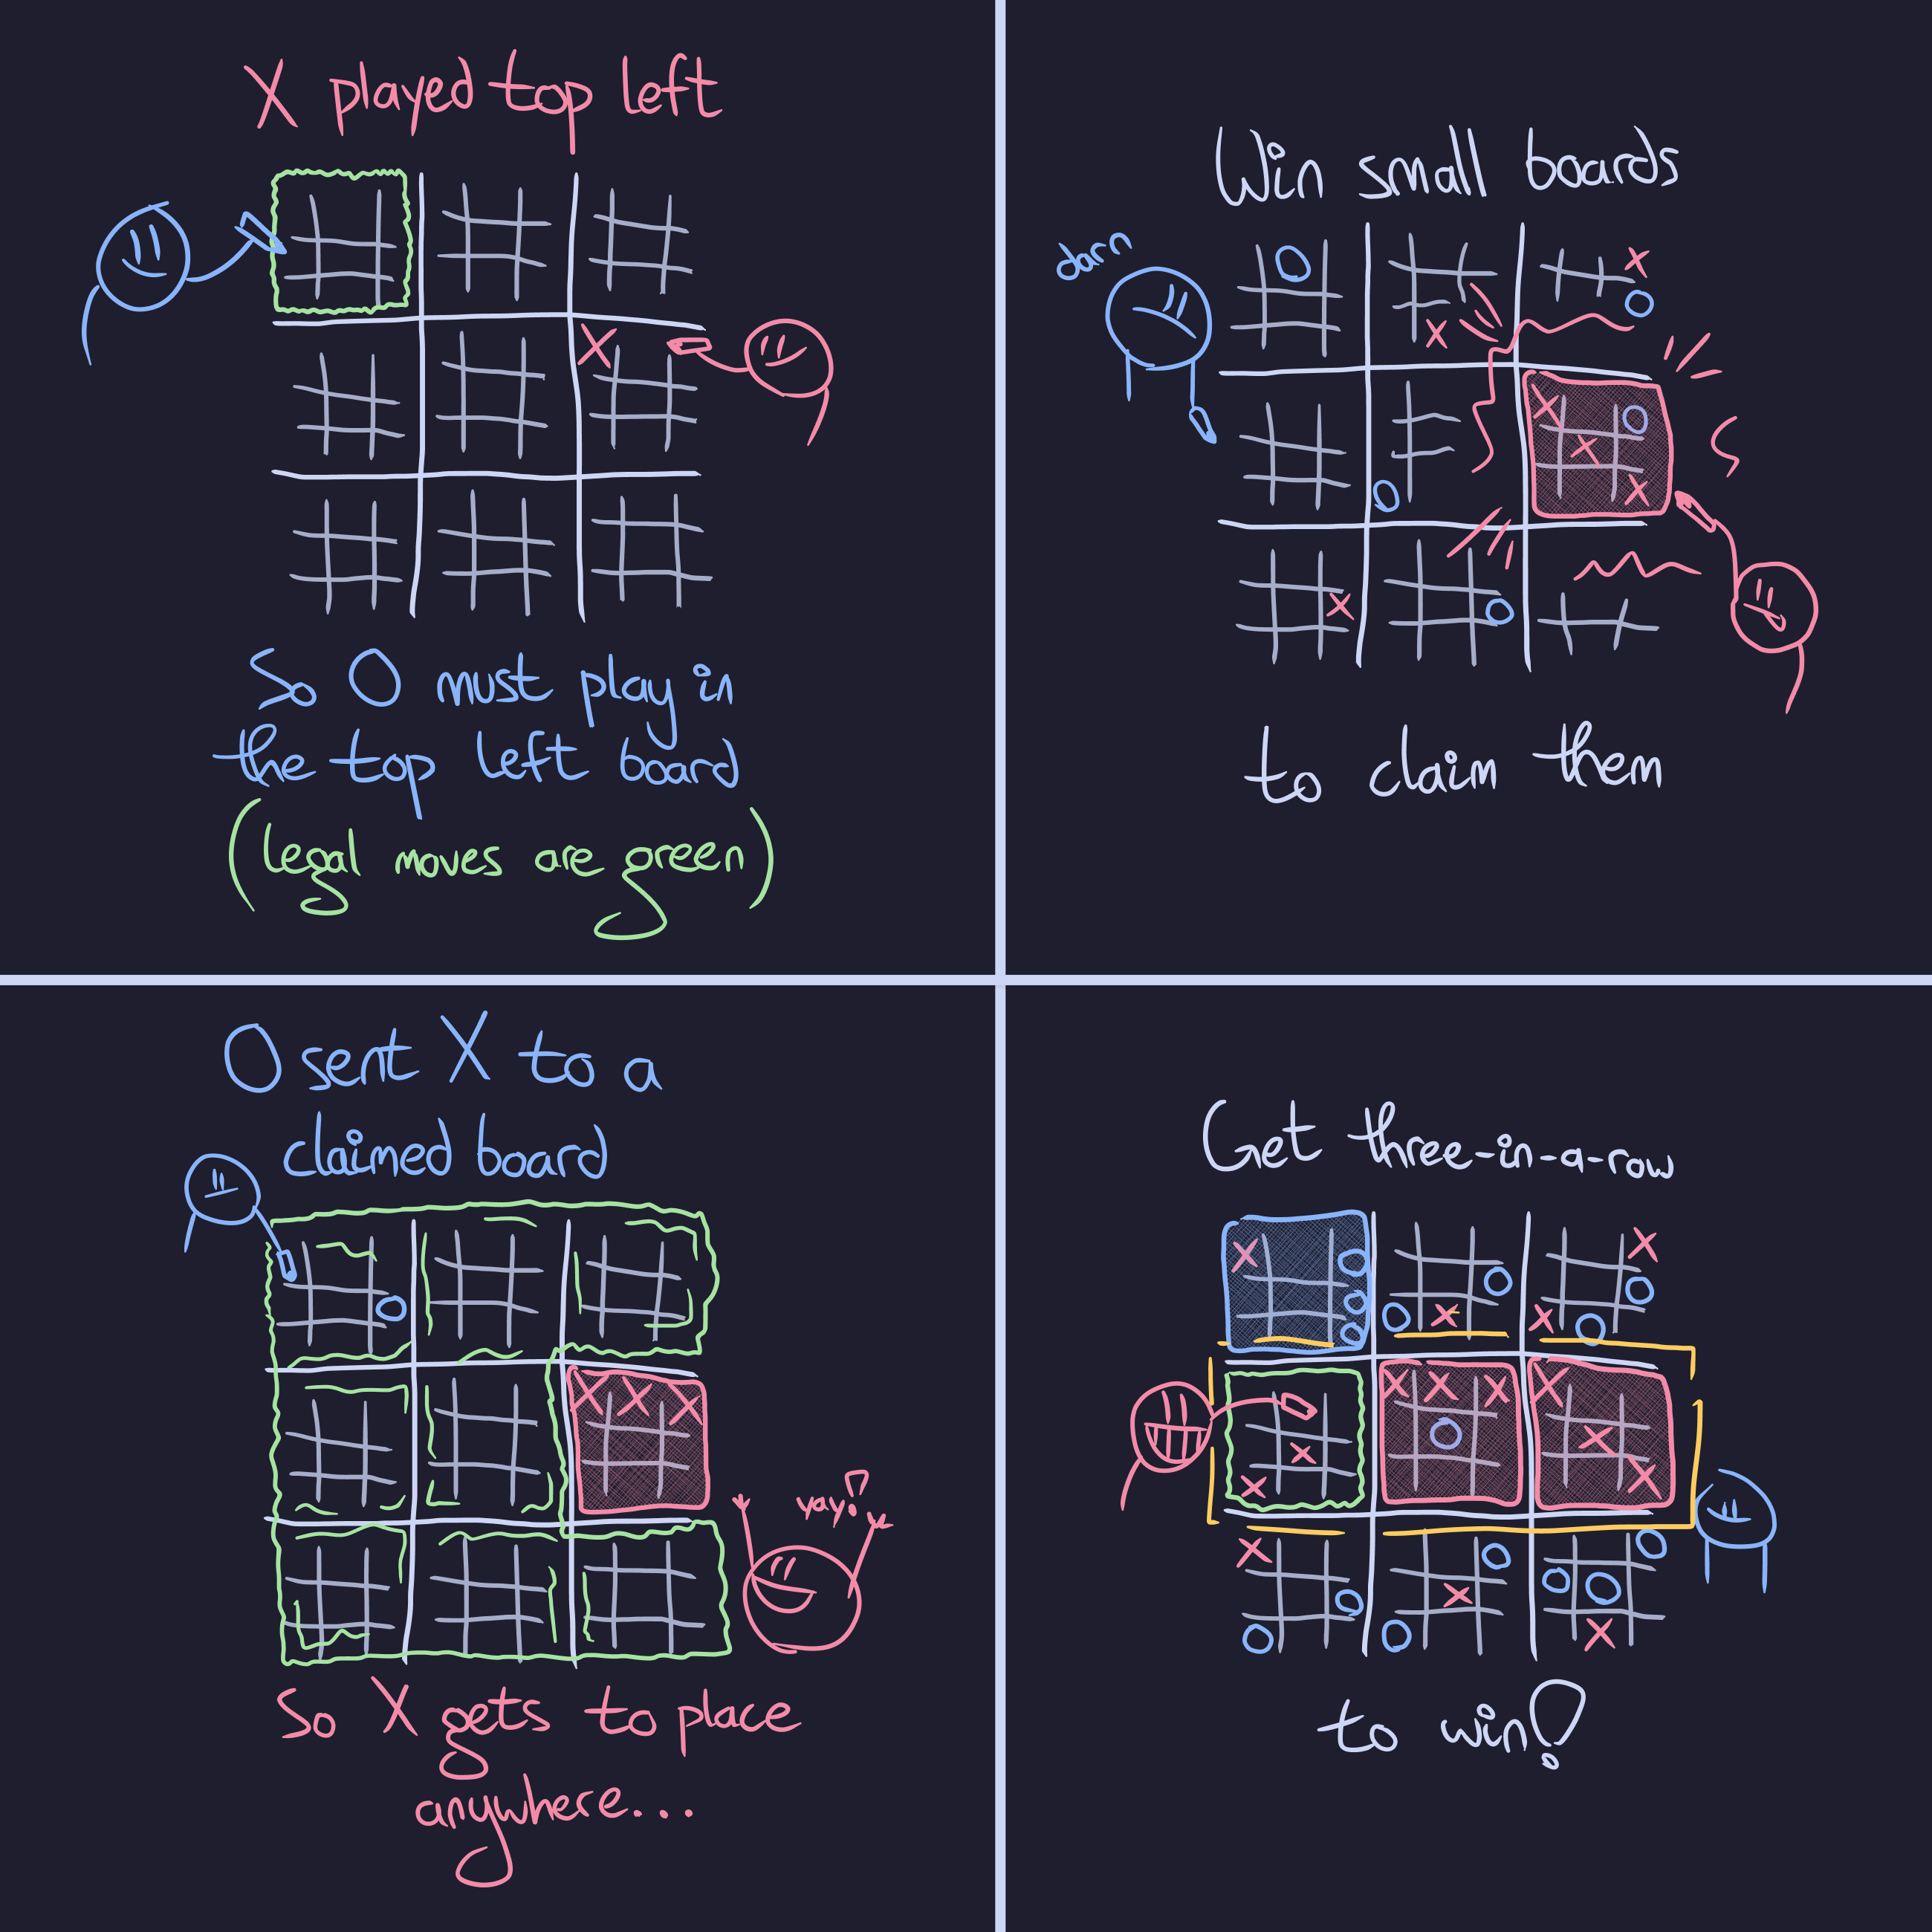 X played top left
So O must play in
the top left board
(legal moves are green)
Win small boards
darn
to claim them
O sent X to a
claimed board
yay!
So X gets to place
anywhere...
Get three-in-a-row
to win!